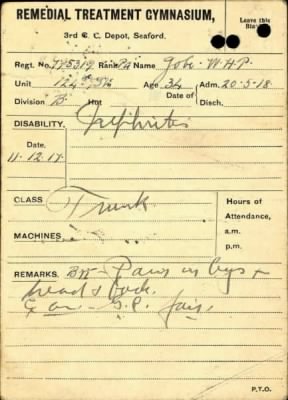 REMEDIAL TREATMENT GYMNASIUM,
Leave this
3rd C. C. Depot, Seaford.
Regt. No. 775319 Rank Pte Name Jobe. W.H.P.
Unit 124th Bn Age 34 Adm. 20-5-18
Division B Hut Date of Disch.
DISABILITY. Nephritis
Date
11.12.17.
CLASS Trunk
Hours of
Attendance,
MACHINES a.m.
p.m.
REMARKS. Pains in legs &
head & back.
G.C. fair.
P.T.O.